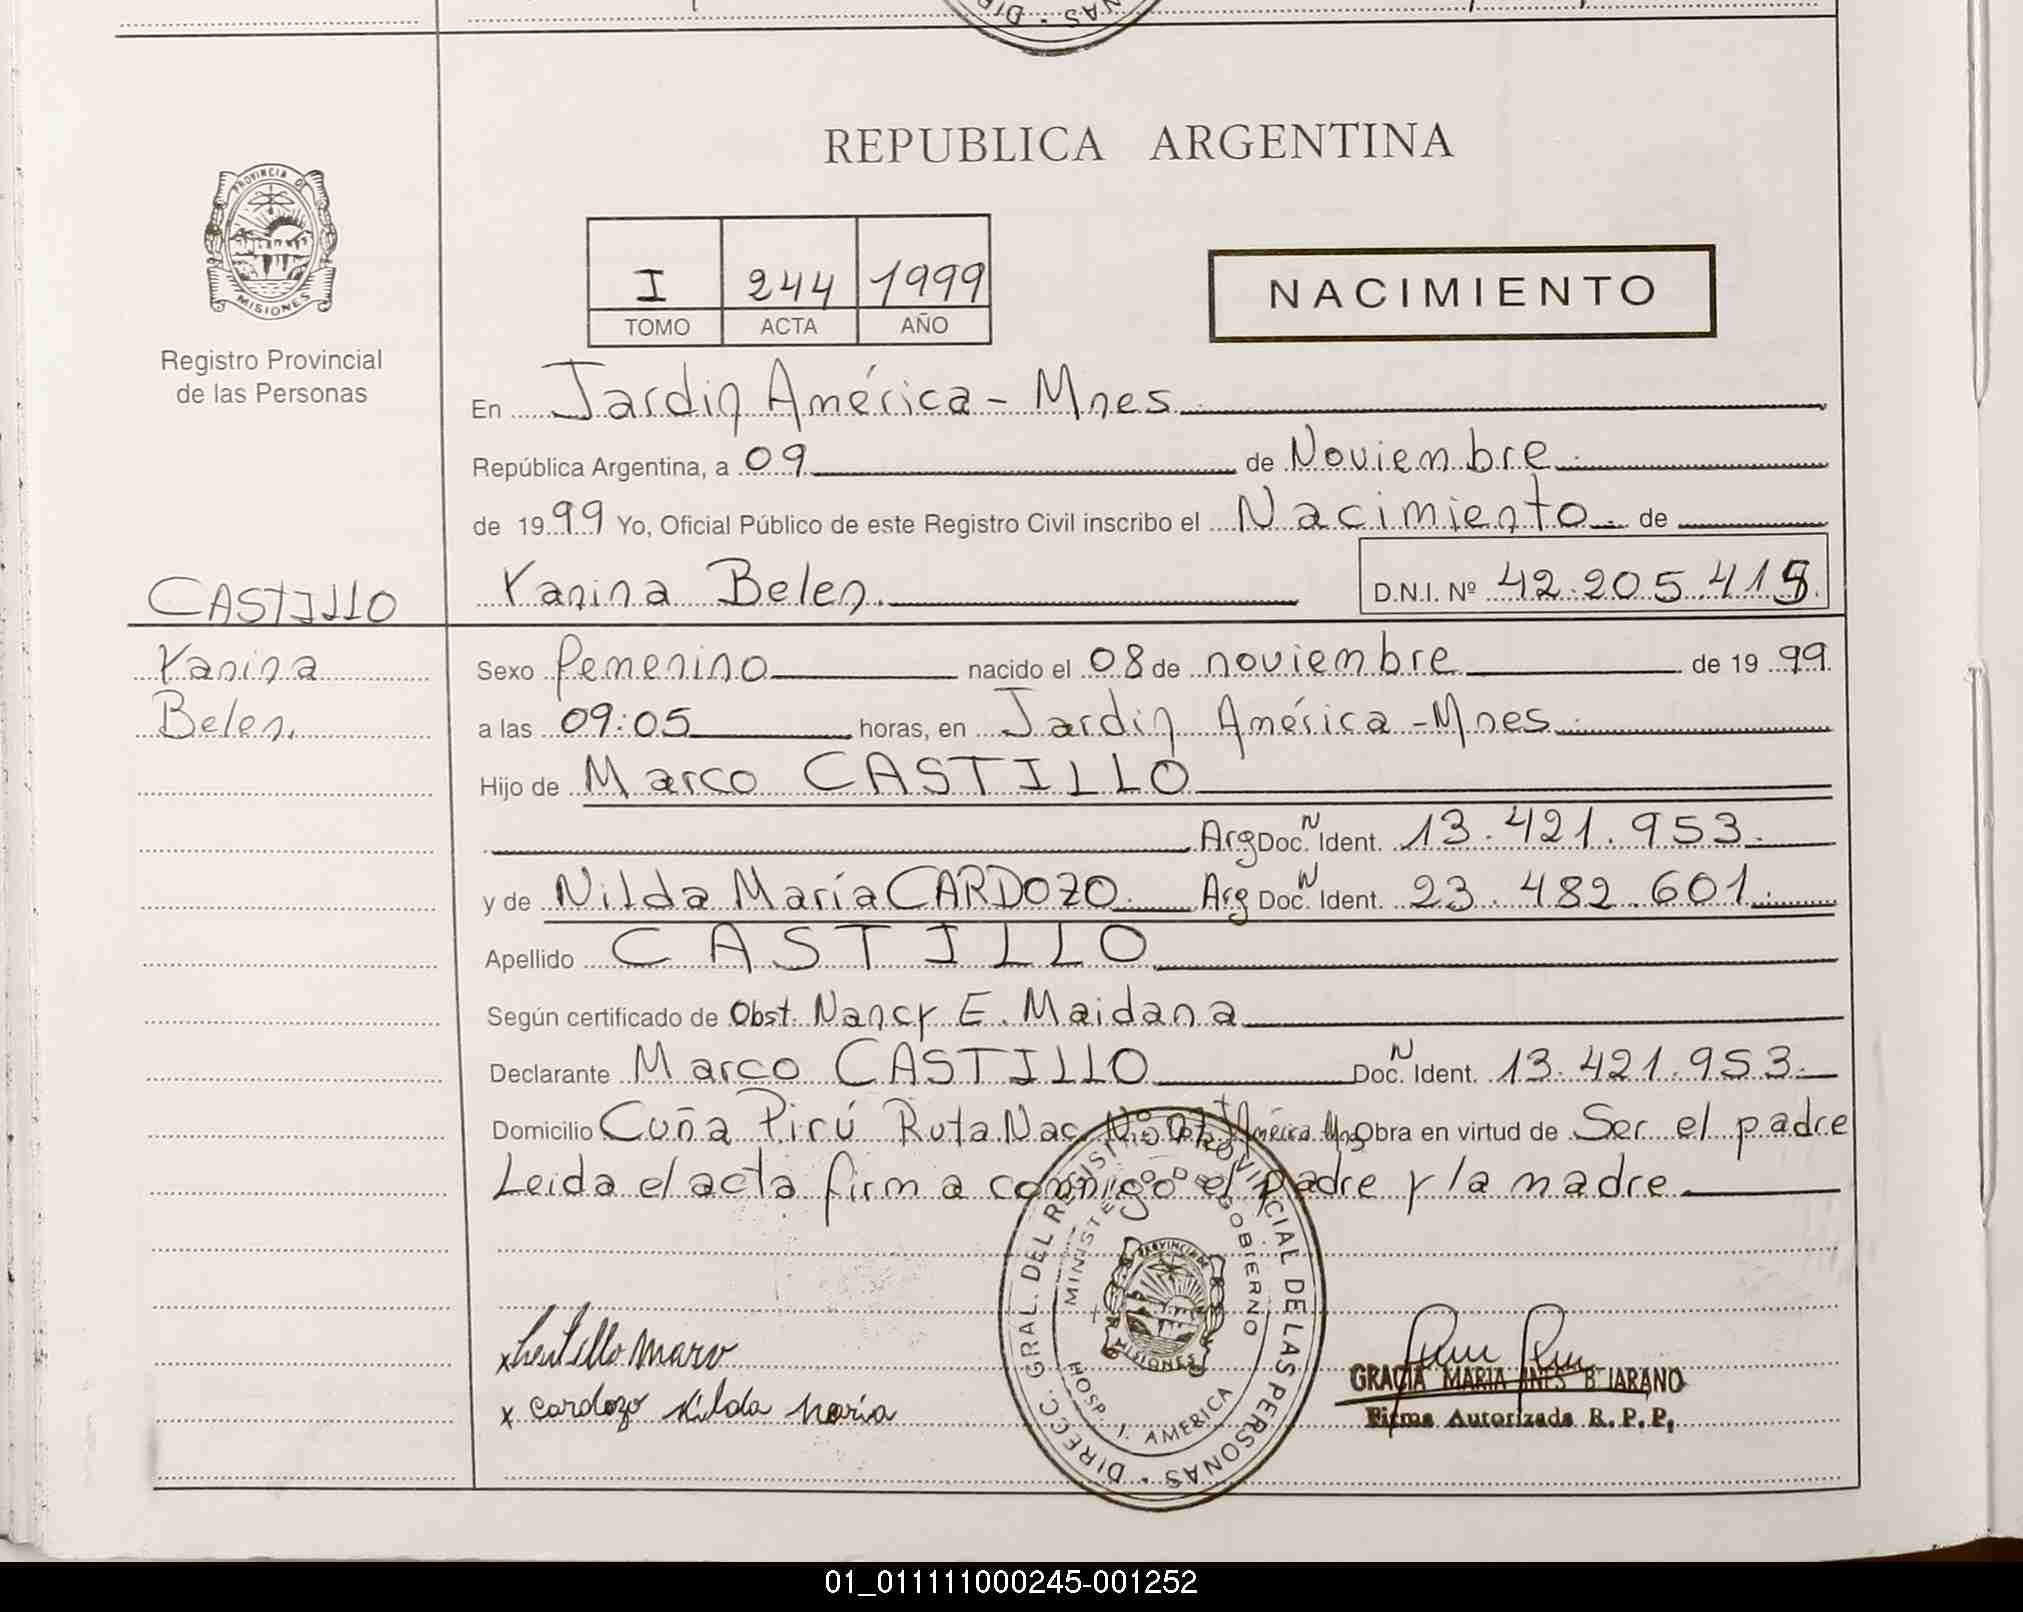 REPUBLICA ARGENTINA
PROVINCIA DE
MISIONES
Registro Provincial
de las Personas
I 244 1999
TOMO ACTA AÑO
NACIMIENTO
En Jardin América - Mnes
República Argentina, a 09 de Noviembre
de 1999 Yo, Oficial Público de este Registro Civil inscribo el Nacimiento de
CASTILLO
Yanina
Belen.
Yanina Belen. D.N.I. Nº 42.205.415
Sexo femenino nacido el 08 de noviembre de 1999
a las 09:05 horas, en Jardin América - Mnes
Hijo de Marco CASTILLO
Arg Doc. N Ident. 13.421.953.
y de Nilda María CARDOZO. Arg Doc. N Ident. 23.482.601.
Apellido CASTILLO
Según certificado de Obst. Nancy E. Maidana
Declarante Marco CASTILLO Doc. N Ident. 13.421.953.
Domicilio Cuña Pirú Ruta Nac. Nº 07 América Mnes Obra en virtud de Ser el padre
Leida el acta firma conmigo el padre y la madre
DIRECC. GRAL. DEL REGISTRO PROVINCIAL DE LAS PERSONAS
MINISTERIO DE GOBIERNO
PROVINCIA DE
MISIONES
HOSP. J. AMERICA
x Castillo Marco
x Cardozo Nilda María
GRACIA MARIA INES BEJARANO
Firma Autorizada R.P.P.
01_011111000245-001252